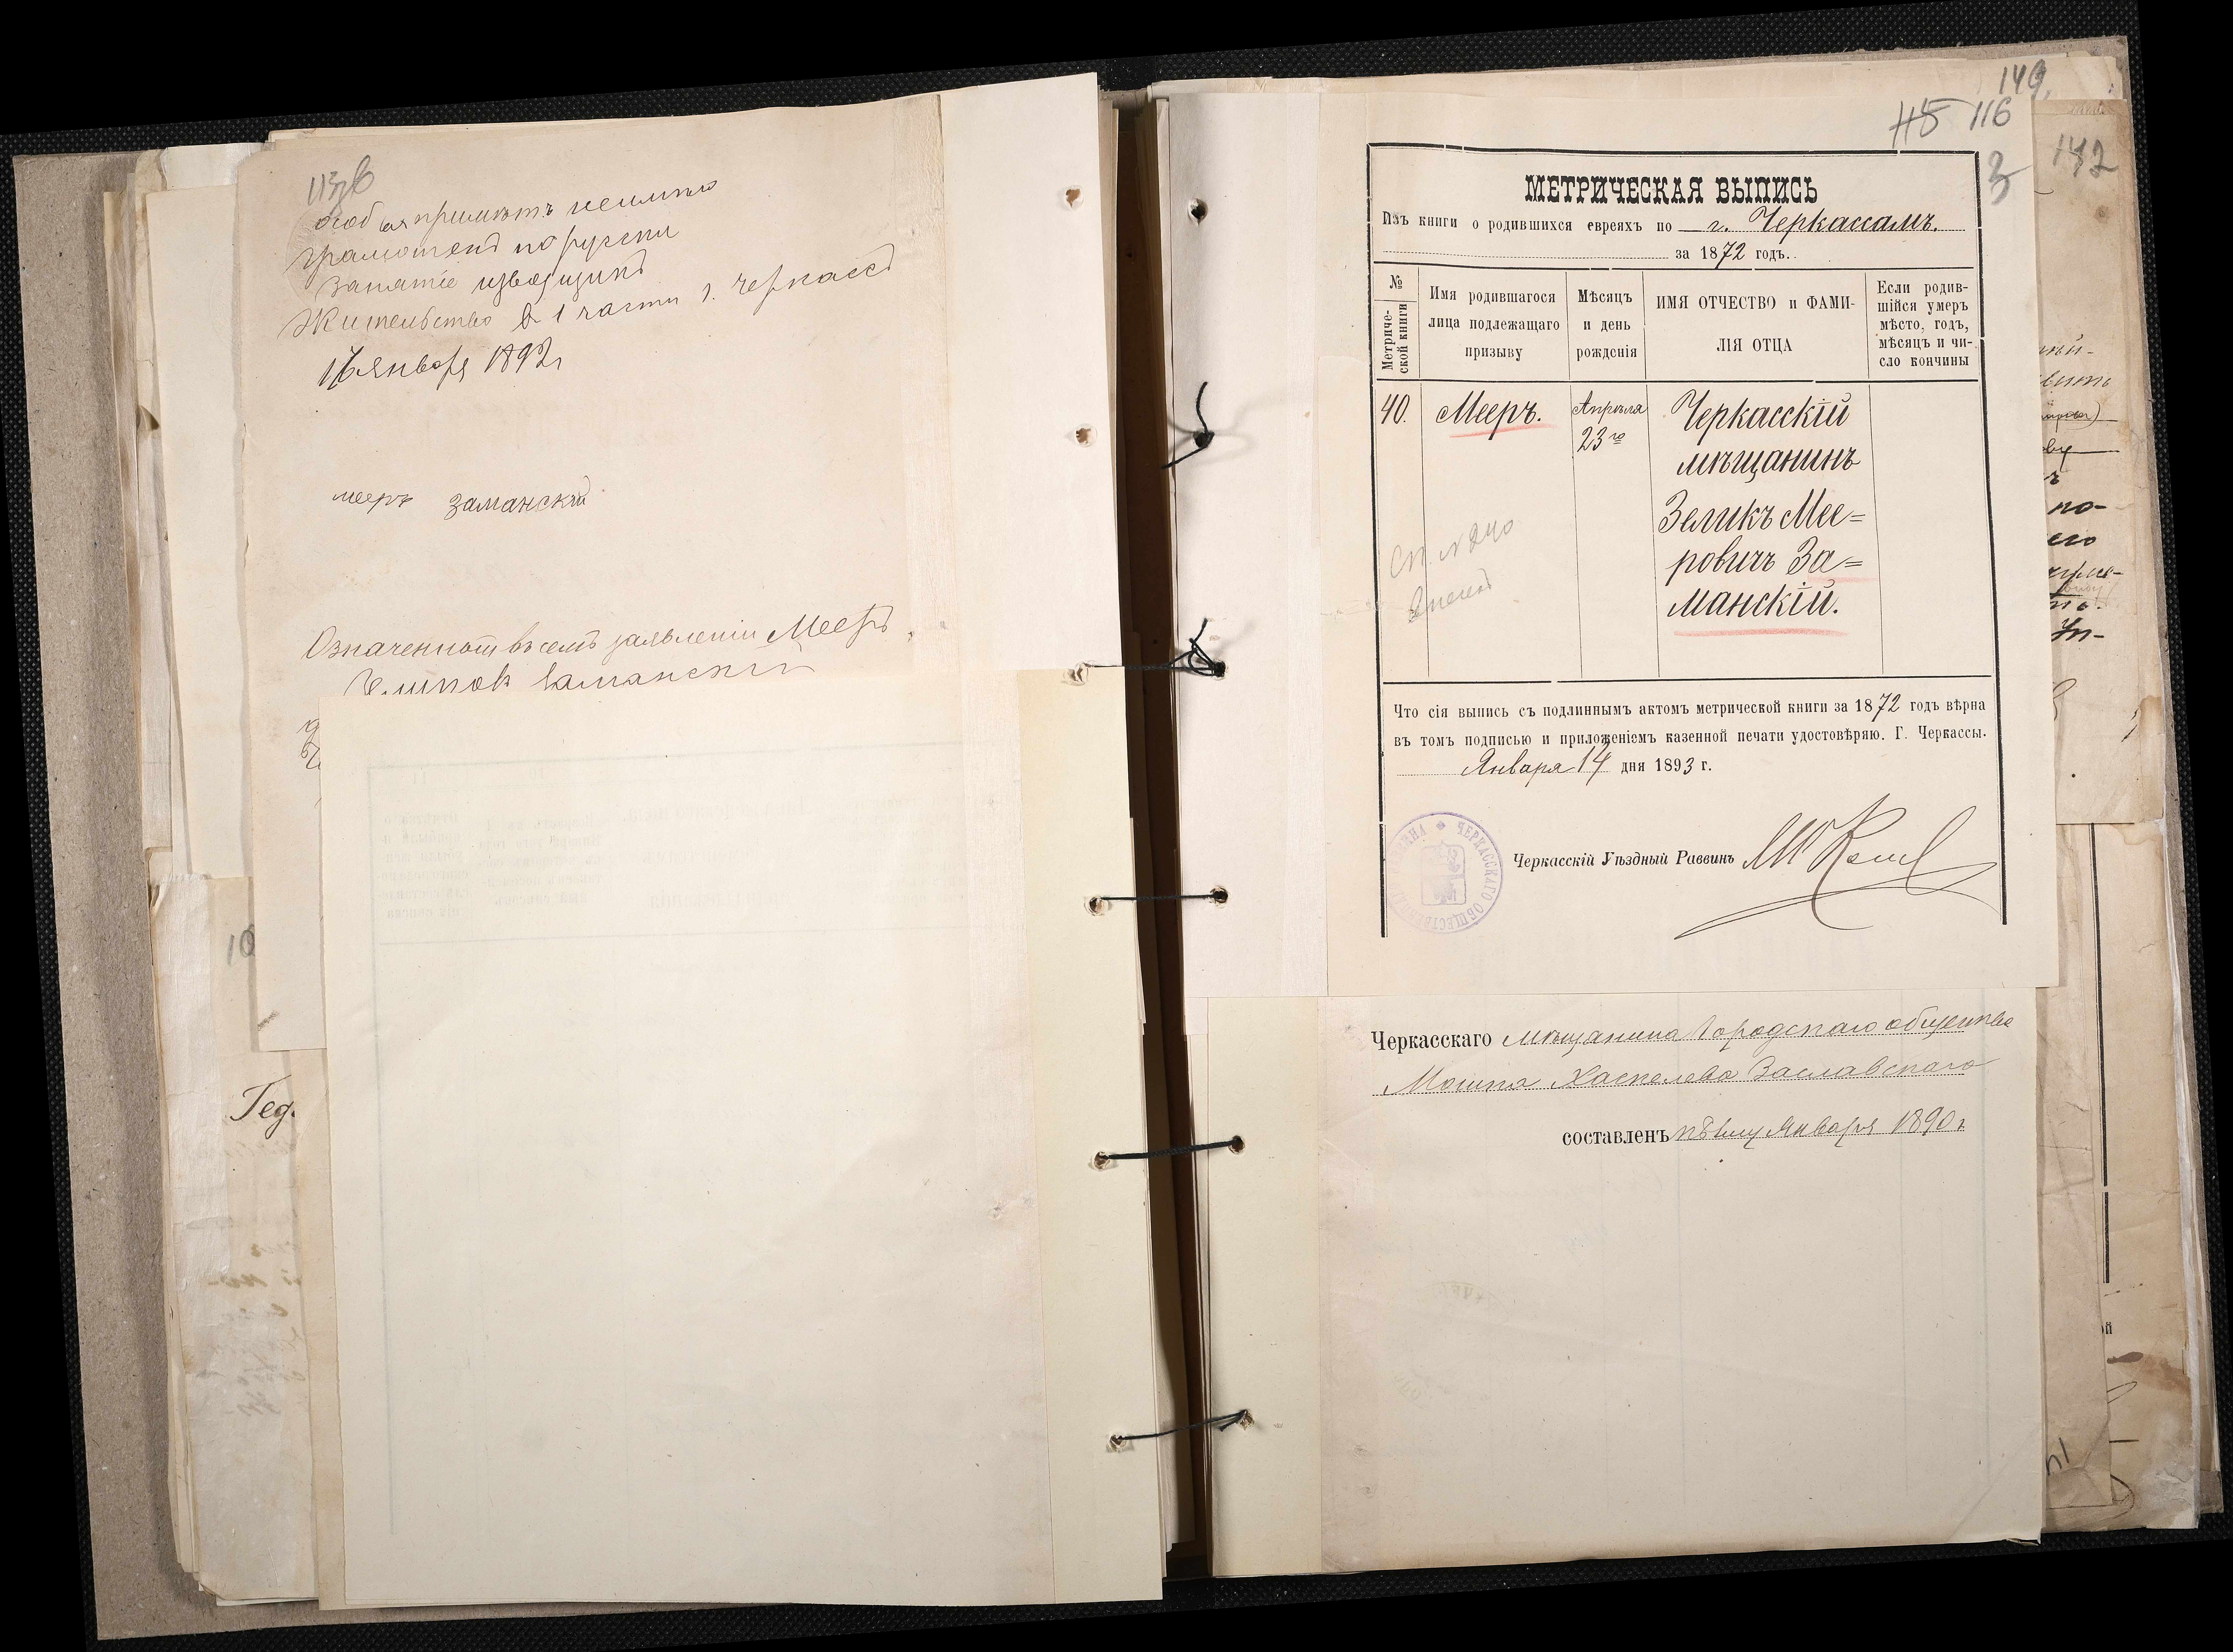 особыя примѣтъ неимѣю
грамотенъ по русски
Занятіе извозщикъ
Жительство в 1 части г. Черкассъ
17 января 1892 г
мееръ заманскій
Означенном въ семъ заявленіи Мееръ
Заманскій
Гед
149.
115 116
3
142
МЕТРИЧЕСКАЯ ВЫПИСЬ
Изъ книги о родившихся евреяхъ по г. Черкассамъ.
за 1872 годъ.
№ Метрической книги
Имя родившагося лица подлежащаго призыву
Мѣсяцъ и день рожденія
ИМЯ ОТЧЕСТВО и ФАМИЛІЯ ОТЦА
Если родившійся умеръ мѣсто, годъ, мѣсяцъ и число кончины
40. Мееръ. Апрѣля Черкасскій
23го мѣщанинъ
Зеликъ Мее=
ровичъ За=
манскій.
Что сія выпись съ подлиннымъ актомъ метрической книги за 1872 годъ вѣрна
въ томъ подписью и приложеніемъ казенной печати удостовѣряю. Г. Черкассы.
Января 14 дня 1893 г.
Черкасскій Уѣздный Раввинъ
ЧЕРКАССКАГО ОБЩЕСТВЕН
Черкасскаго мѣщанина Городскаго общества
Мошка Хаскелева Заславскаго
составленъ къ 1му Января 1890 г.